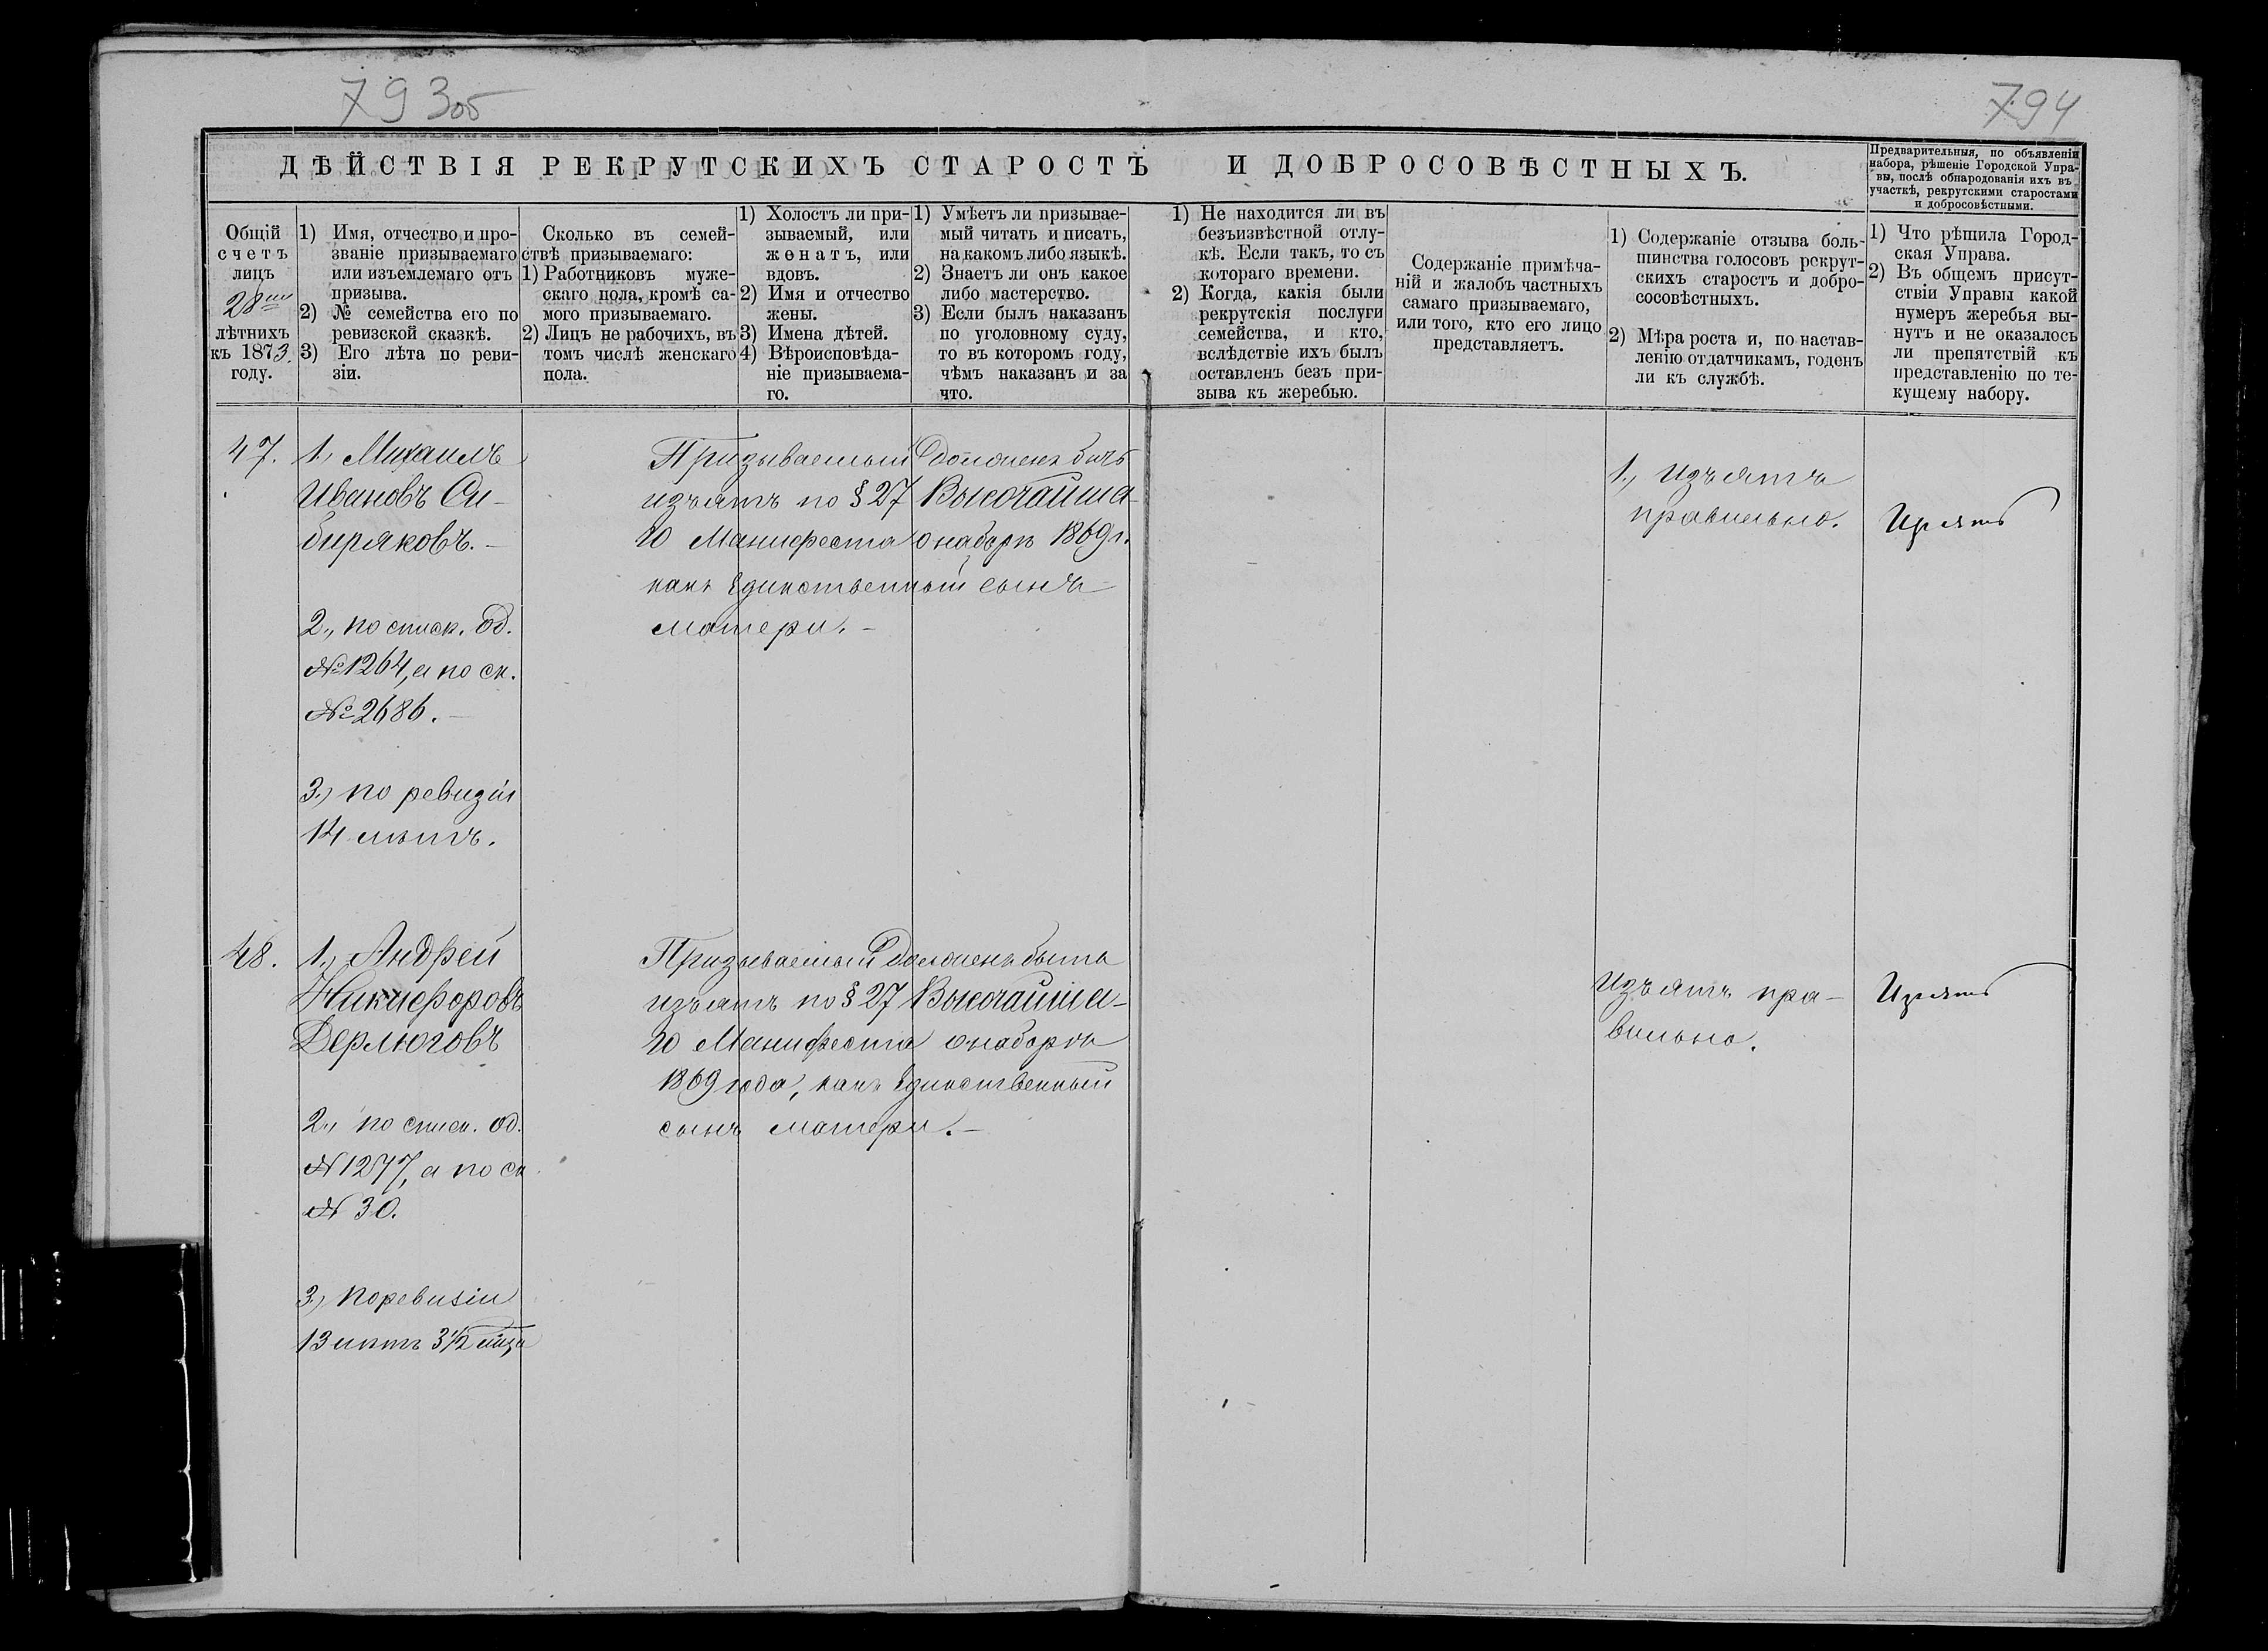 793об
794
ДѢЙСТВІЯ РЕКРУТСКИХЪ СТАРОСТЪ И ДОБРОСОВѢСТНЫХЪ.
Предварительныя, по объявленіи
набора, рѣшеніе Городской Упра-
вы, послѣ обнародованія ихъ въ
участкѣ, рекрутскими старостами
и добросовѣстными.
Общій
счетъ
лицъ
28ми
лѣтнихъ
къ 1873.
году.
1) Имя, отчество и про-
званіе призываемаго
или изъемлемаго отъ
призыва.
2) № семейства его по
ревизской сказкѣ.
3) Его лѣта по реви-
зіи.
Сколько въ семей-
ствѣ призываемаго:
1) Работниковъ муже-
скаго пола, кромѣ са-
мого призываемаго.
2) Лицъ не рабочихъ, въ
томъ числѣ женскаго
пола.
1) Холостъ ли при-
зываемый, или
женатъ, или
вдовъ.
2) Имя и отчество
жены.
3) Имена дѣтей.
4) Вѣроисповѣда-
ніе призываема-
го.
1) Умѣетъ ли призывае-
мый читать и писать,
на какомъ либо языкѣ.
2) Знаетъ ли онъ какое
либо мастерство.
3) Если былъ наказанъ
по уголовному суду,
то въ которомъ году,
чѣмъ наказанъ и за
что.
1) Не находится ли въ
безъизвѣстной отлу-
кѣ. Если такъ, то съ
котораго времени.
2) Когда, какія были
рекрутскія послуги
семейства, и кто,
вслѣдствіе ихъ былъ
оставленъ безъ при-
зыва къ жеребью.
Содержаніе примѣча-
ній и жалобъ частныхъ
самаго призываемаго,
или того, кто его лицо
представляетъ.
1) Содержаніе отзыва боль-
шинства голосовъ рекрут-
скихъ старостъ и добро-
сосовѣстныхъ.
2) Мѣра роста и, по настав-
ленію отдатчикамъ, годенъ
ли къ службѣ.
1) Что рѣшила Город-
ская Управа.
2) Въ общемъ присут-
ствіи Управы какой
нумеръ жеребья вы-
нутъ и не оказалось
ли препятствій къ
представленію по те-
кущему набору.
47.
1., Михаилъ
Ивановъ Си-
биряковъ. –
2., по списк. од.
№ 1264, а по ск.
№ 2686. –
3.) по ревизіи
14 лѣтъ.
Призываемый долженъ быть
изъятъ по § 27 Высочайша-
го Манифеста о наборѣ 1869 г.
какъ единственный сынъ
матери. –
1., Изъятъ
правильно.
Изъять
48.
1., Андрей
Никифоровъ
Дерлюговъ
2., по списк. од.
№ 1277, а по ск
№ 30.
3.) по ревизіи
13 лѣтъ 3½ мѣца
Призываемый долженъ быть
изъятъ по § 27 Высочайша-
го Манифеста о наборѣ
1869 года, какъ единственный
сынъ матери. –
Изъятъ пра-
вильно.
Изъять